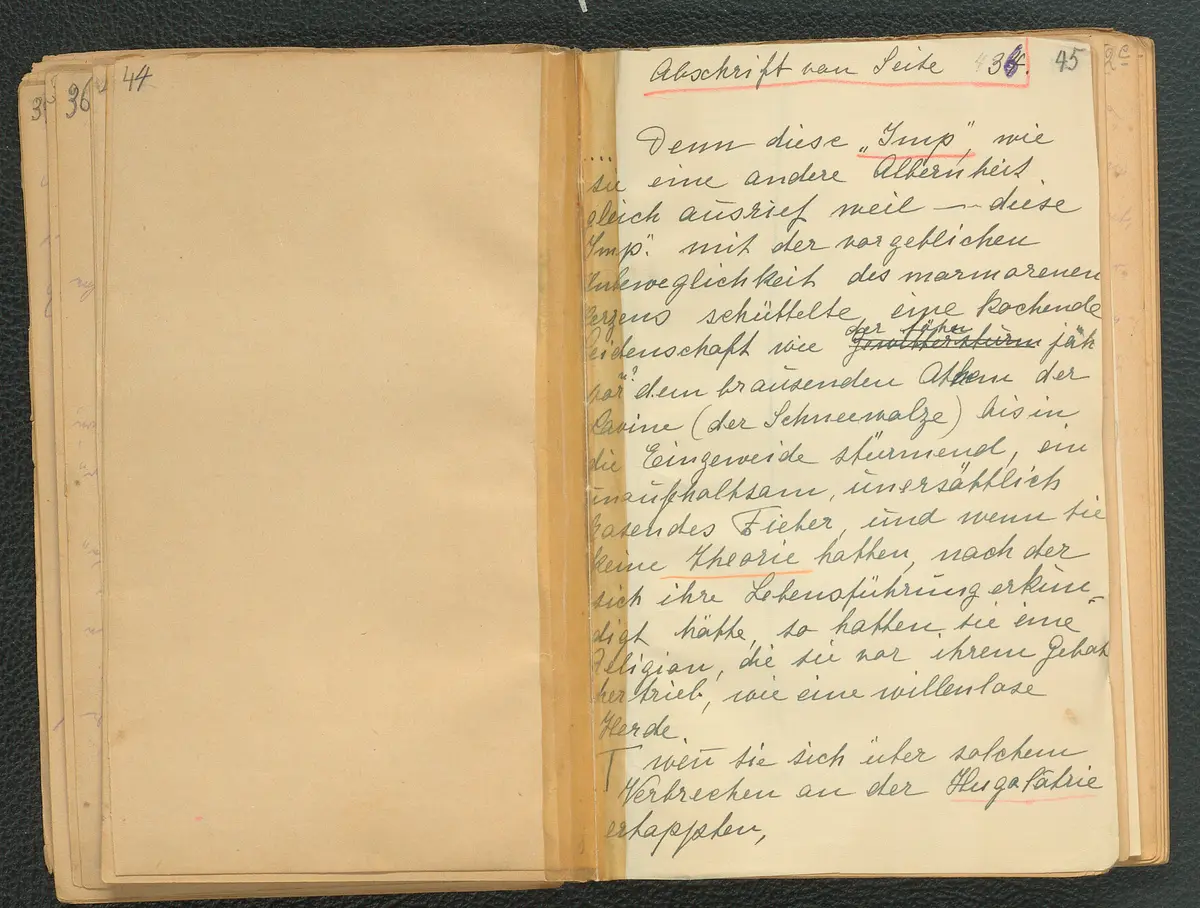 44
36
Abschrift von Seite 43
45
.... Denn diese „Imp", wie
sie eine andere Albernheit
gleich ausrief weil — diese
„Imp". mit der vorgeblichen
Unbeweglichkeit des marmorenen
Herzens schüttelte, eine kochende
der töhn
Leidenschaft wie Gewittersturm jäh
vor dem brausenden Athem der
Lavine (der Schneewalze) bis in
die Eingeweide stürmend, ein
unaufhaltsam, unersättlich
rasendes Fieber, und wenn sie
keine Theorie hatten, nach der
sich ihre Lebensführung erkün-
digt hätte, so hatten sie eine
Religion, die sie vor ihrem Gebot
hertrieb, wie eine willenlose
Herde.
T wen̅ sie sich über solchem
Verbrechen an der Hugolatrie
ertappten,